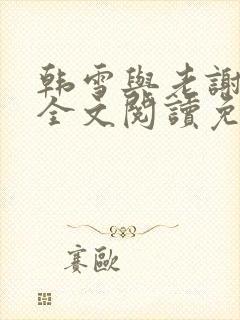 韩雪與老謝
全文閱讀免
賽歐